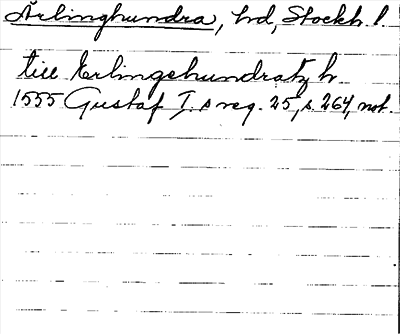 Ärlinghundra, hd, Stockh. l.
till Erlingehundratz h.
1555 Gustaf I.s reg. 25, s. 264, not.